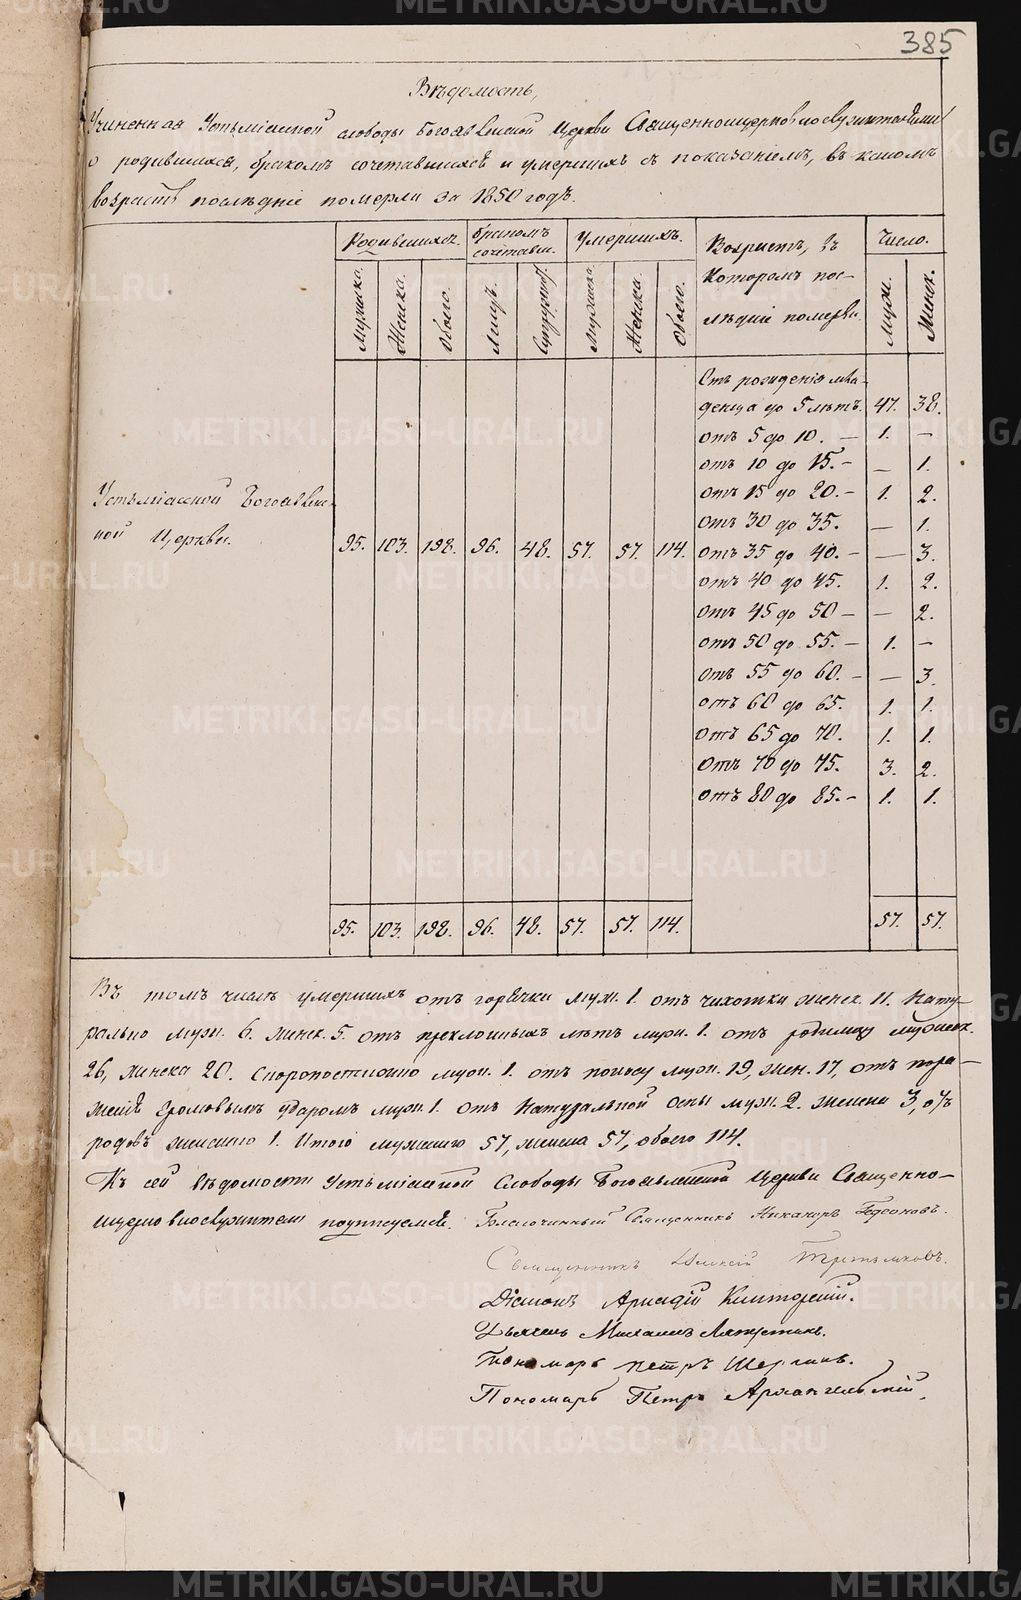 385
Вѣдомость,
Учиненная Устьміасской слободы Богоявленской Церкви Священноцерковнослужителями
о родившихся, бракомъ сочетавшихся и умершихъ съ показаніемъ, въ какомъ
возрастѣ послѣдніе померли за 1850 годъ.
Родившихся. бракомъ сочетавш. Умершихъ. Возрастъ, въ которомъ послѣдніе померли. Число.
Мужска. Женска. Обоего. Лицъ. Супружест. Мужеска. Женска. Обоего. Муж. Женск.
Отъ рожденія мла-
денца до 5 лѣтъ. 47. 38.
отъ 5 до 10. — 1. —
отъ 10 до 15. — — 1.
отъ 15 до 20. — 1. 2.
отъ 30 до 35. — 1.
отъ 35 до 40. — — 3.
отъ 40 до 45. 1. 2.
отъ 45 до 50 — — 2.
отъ 50 до 55. — 1. —
отъ 55 до 60. — — 3.
отъ 60 до 65. 1. 1.
отъ 65 до 70. 1. 1.
отъ 70 до 75. 3. 2.
отъ 80 до 85. — 1. 1.
Устьміасской Богоявлен-
ской Церкви. 95. 103. 198. 96. 48. 57. 57. 114.
95. 103. 198. 96. 48. 57. 57. 114. 57. 57.
Въ томъ числѣ умершихъ отъ горячки муж. 1. отъ чихотки женск. 11. Нату-
рально муж. 6. женск. 5. отъ преклонныхъ лѣтъ муж. 1. отъ родимцу мужеск.
26, женска 20. Скоропостижно муж. 1. отъ поносу муж. 19, жен. 17, отъ пора-
женія громовымъ ударомъ муж. 1. отъ Натуральной оспы муж. 2. женска 3, отъ
родовъ женскаго 1. Итого мужескаго 57, женска 57, обоего 114.
Къ сей вѣдомости Устьміасской Слободы Богоявленской Церкви Священно-
церковнослужители подписуемся. Благочинный Священникъ Никаноръ
Священникъ Третьяковъ.
Діаконъ Аркадій
Дьячекъ Михаилъ
Пономарь Петръ
Пономарь Петръ Архангельскій.
METRIKI.GASO-URAL.RU